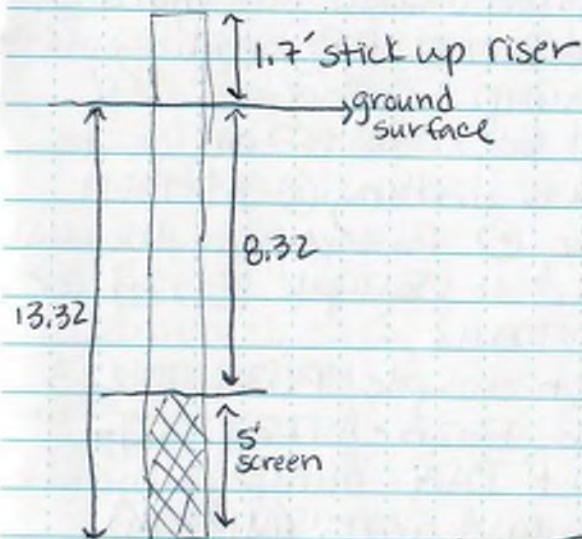 1.7' stick up riser
ground
surface
8.32
13.32
5'
screen